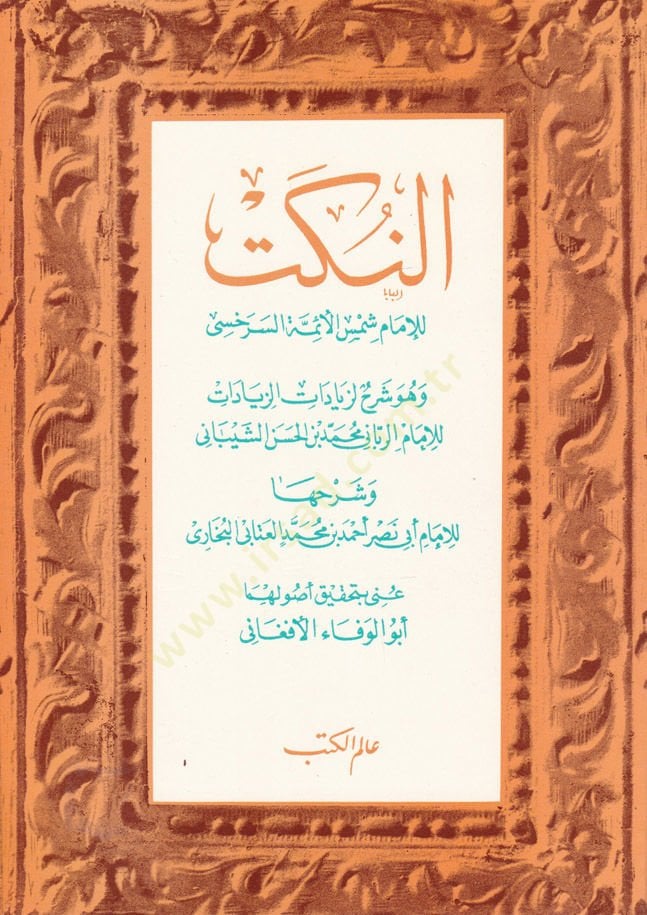 النُكَت
البابا
للإمام شمس الأئمة السرخسى
وَهُوَ شَرحٌ لزيَادَاتِ الزيَادَاتِ
للإمام الربّاني محمّد بن الحسَن الشيبَانى
وَشَرْحهَا
للإمامِ أبي نَصْر أحمد بن محُمَّد العتابى البُخَارى
عُنى بتحقيق أصُولهمَا
أبوُ الوَفَاء الأفغَانى
عالم الكتب
www.irsad.com.tr